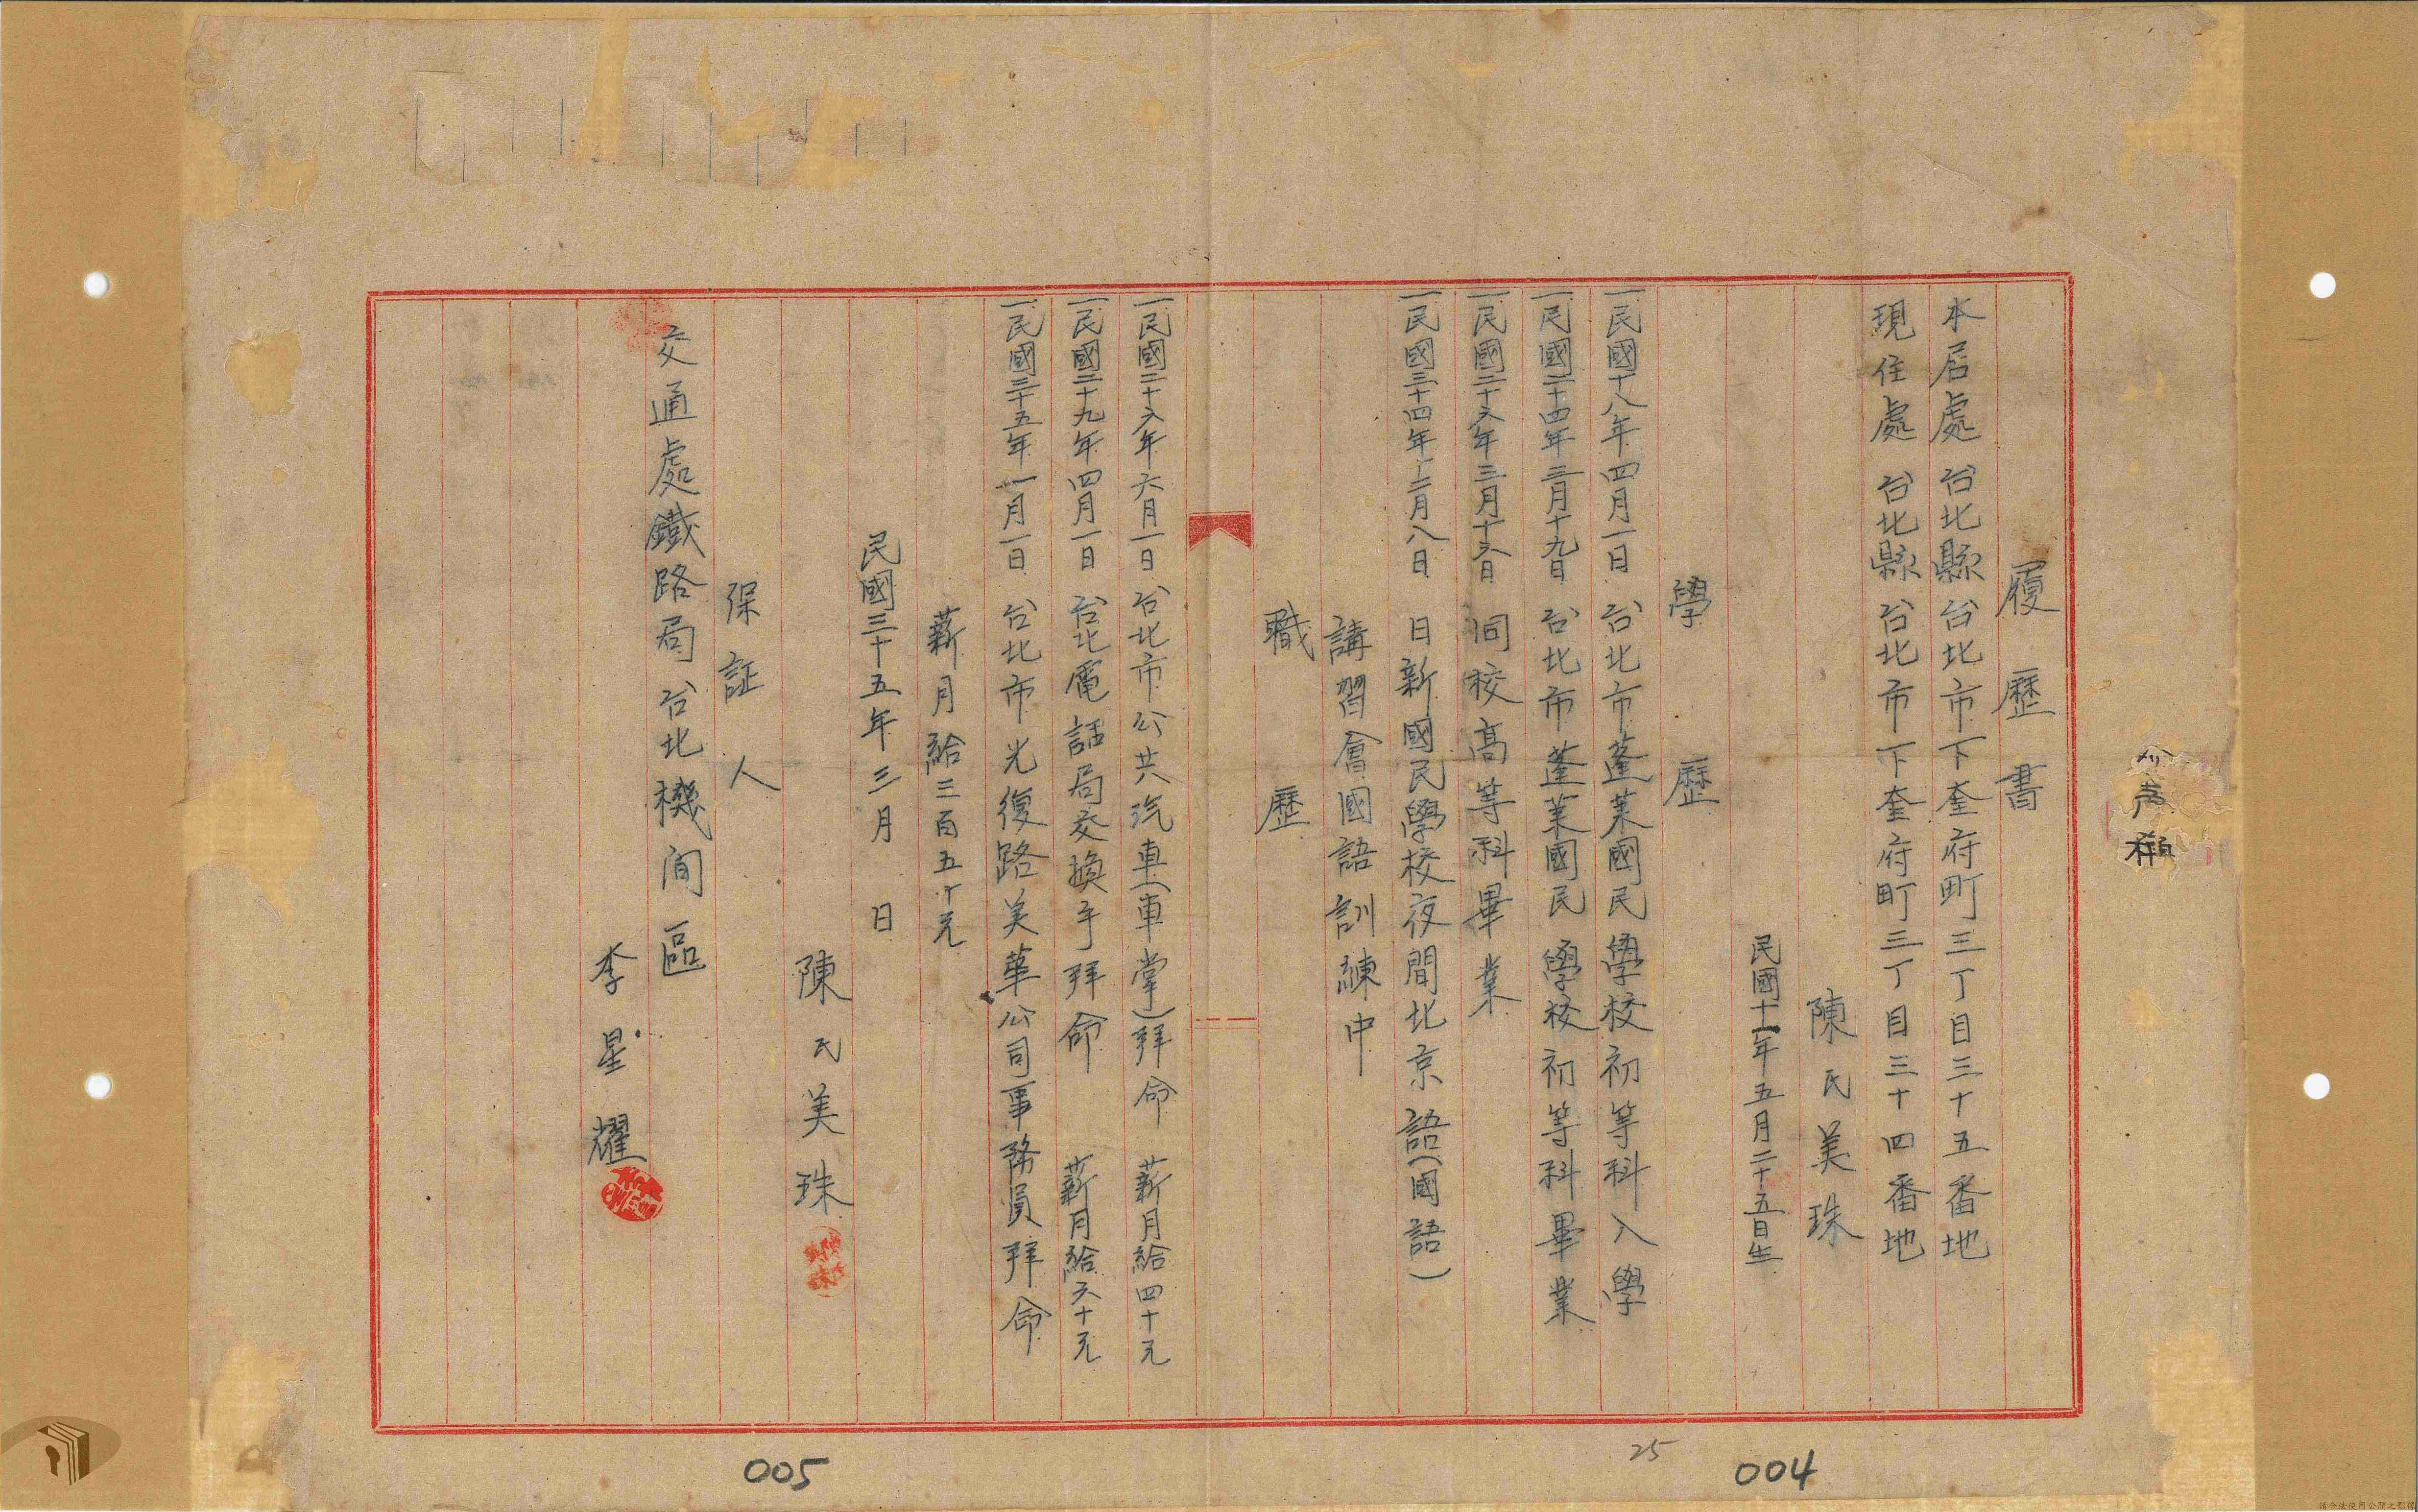 履歷書
本居處 台北縣台北市下奎府町三丁目三十五番地
現住處 台北縣台北市下奎府町三丁目三十四番地
陳氏美珠
民國十一年五月二十五日生
學歷
一民國十八年四月一日 台北市蓬萊國民學校初等科入學
一民國二十四年三月十九日 台北市蓬萊國民學校初等科畢業
一民國二十六年三月十六日 同校高等科畢業
一民國三十四年十二月八日 日新國民學校夜間北京語(國語)
講習會國語訓練中
職歷
一民國二十六年六月一日 台北市公共汽車(車掌)拜命 薪月給四十元
一民國二十九年四月一日 台北電話局交換手拜命 薪月給六十元
一民國三十五年一月一日 台北市光復路美華公司事務員拜命
薪月給三百五十元
民國三十五年三月 日
陳氏美珠
保証人
交通處鐵路局台北機関區
李星耀
25
004
005